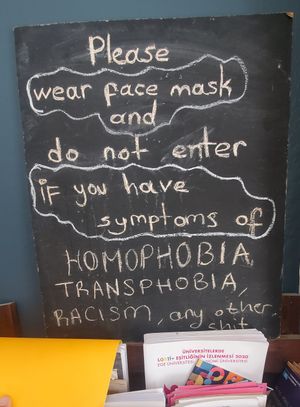 Please
wear face mask
and
do not enter
iF you have
symptoms of
HOMOPHOBIA,
TRANSPHOBIA,
RACISM, any other
shit
ÜNİVERSİTELERDE
LGBTİ+ EŞİTLİĞİNİN İZLENMESİ 2020